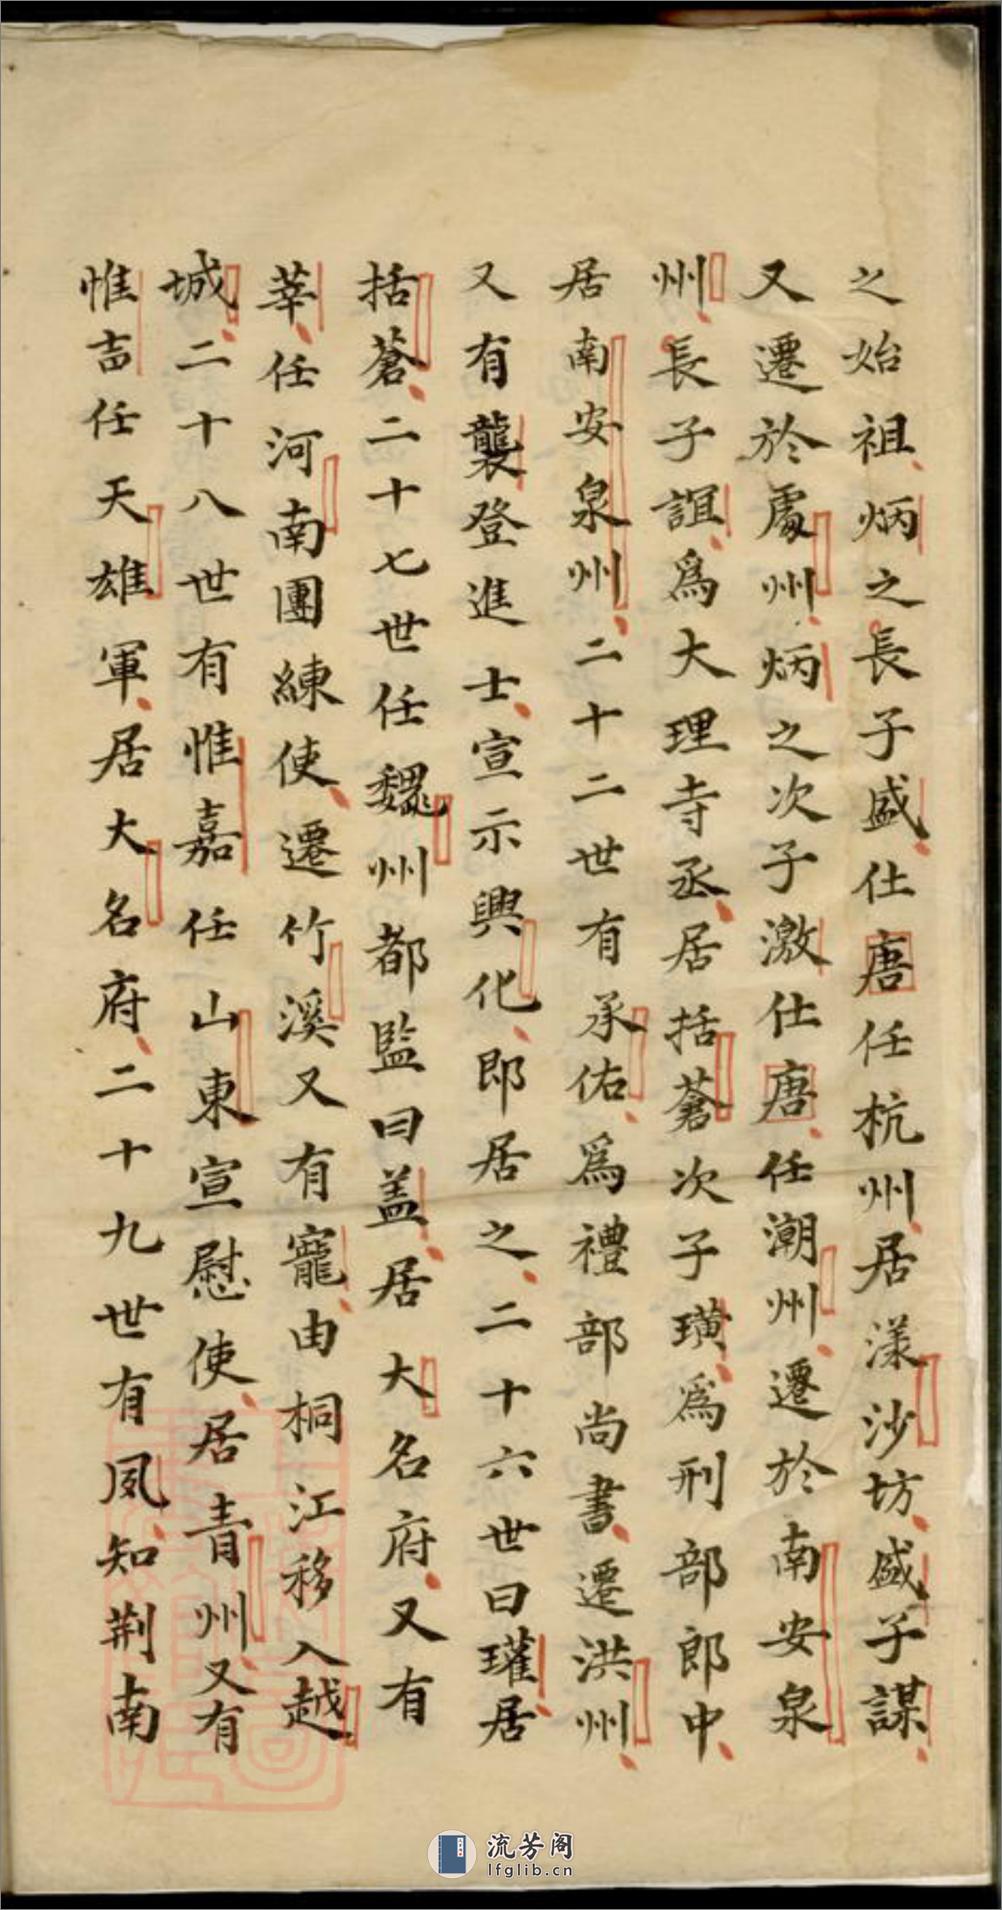 之始祖炳之長子盛仕唐任杭州居漾沙坊盛子謀
又遷於處州炳之次子激仕唐任潮州遷於南安泉
州長子誼爲大理寺丞居括蒼次子璜爲刑部郎中
居南安泉州二十二世有承佑爲禮部尚書遷洪州
又有襲登進士宣示興化即居之二十六世曰瓘居
括蒼二十七世任魏州都監曰盖居大名府又有
莘任河南團練使遷竹溪又有寵由桐江移入越
城二十八世有惟嘉任山東宣慰使居青州又有
惟吉任天雄軍居大名府二十九世有夙知荆南
流芳阁
lfglib.cn